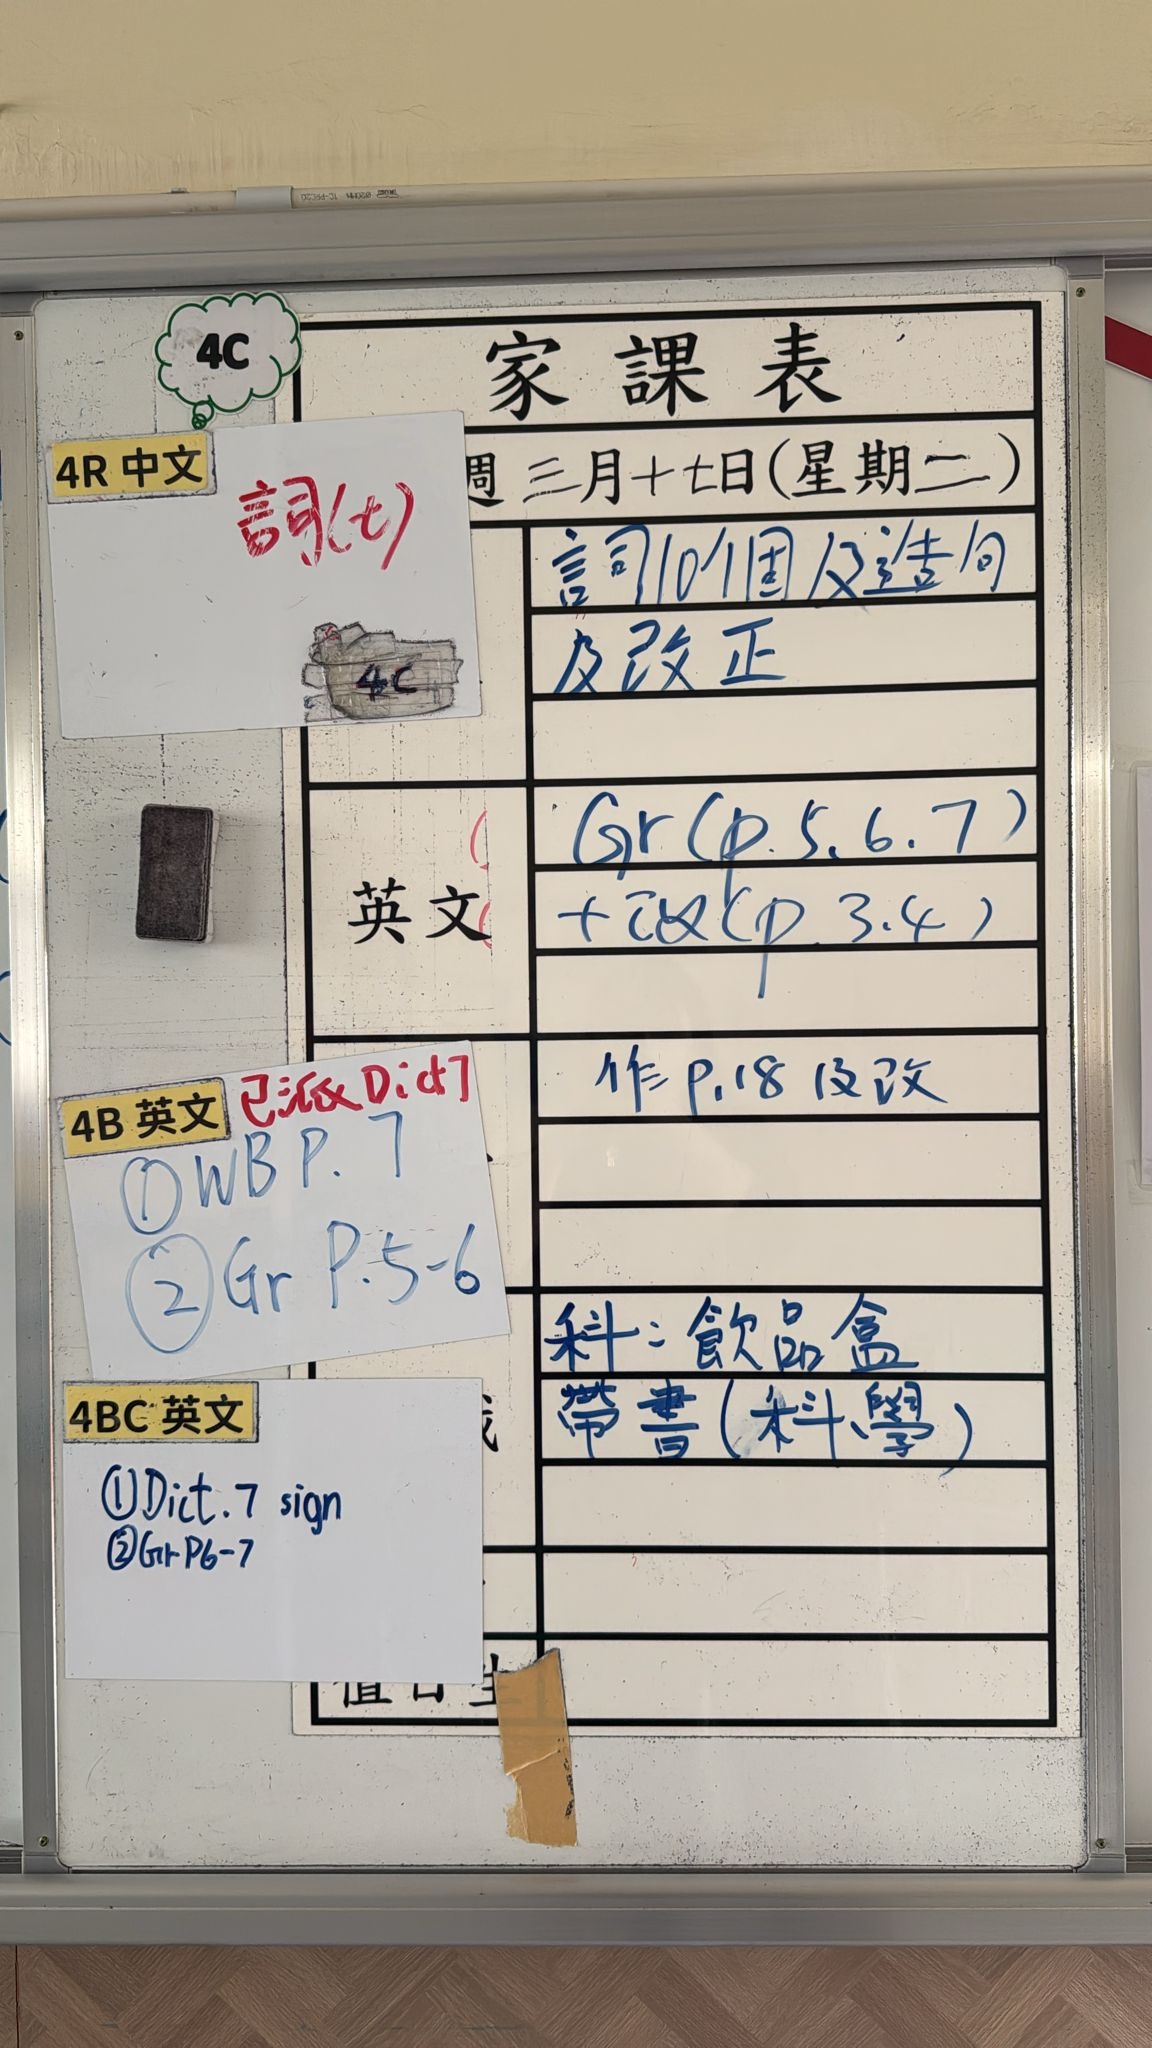 4C
家課表
週三月十七日(星期二)
4R 中文
詞(七)
4C
詞10個及造句
及改正
英文
Gr(p.5.6.7)
+改(p.3.4)
作p.18及改
4B 英文
已派Dict7
①WB P.7
②Gr P.5-6
科:飲品盒
帶書(科學)
4BC 英文
①Dict.7 sign
②Gr P6-7
值日生